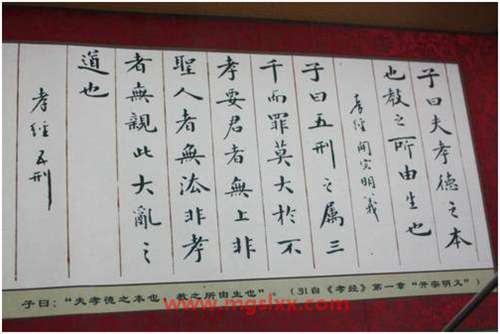 子曰夫孝德之本
也教之所由生也
孝經開宗明義
子曰五刑之属三
千而罪莫大於不
孝要君者無上非
聖人者無法非孝
者無親此大亂之
道也
孝經五刑
子曰：“夫孝德之本也，教之所由生也” （引自《孝经》第一章“开宗明义”）
www.mgsfxx.com